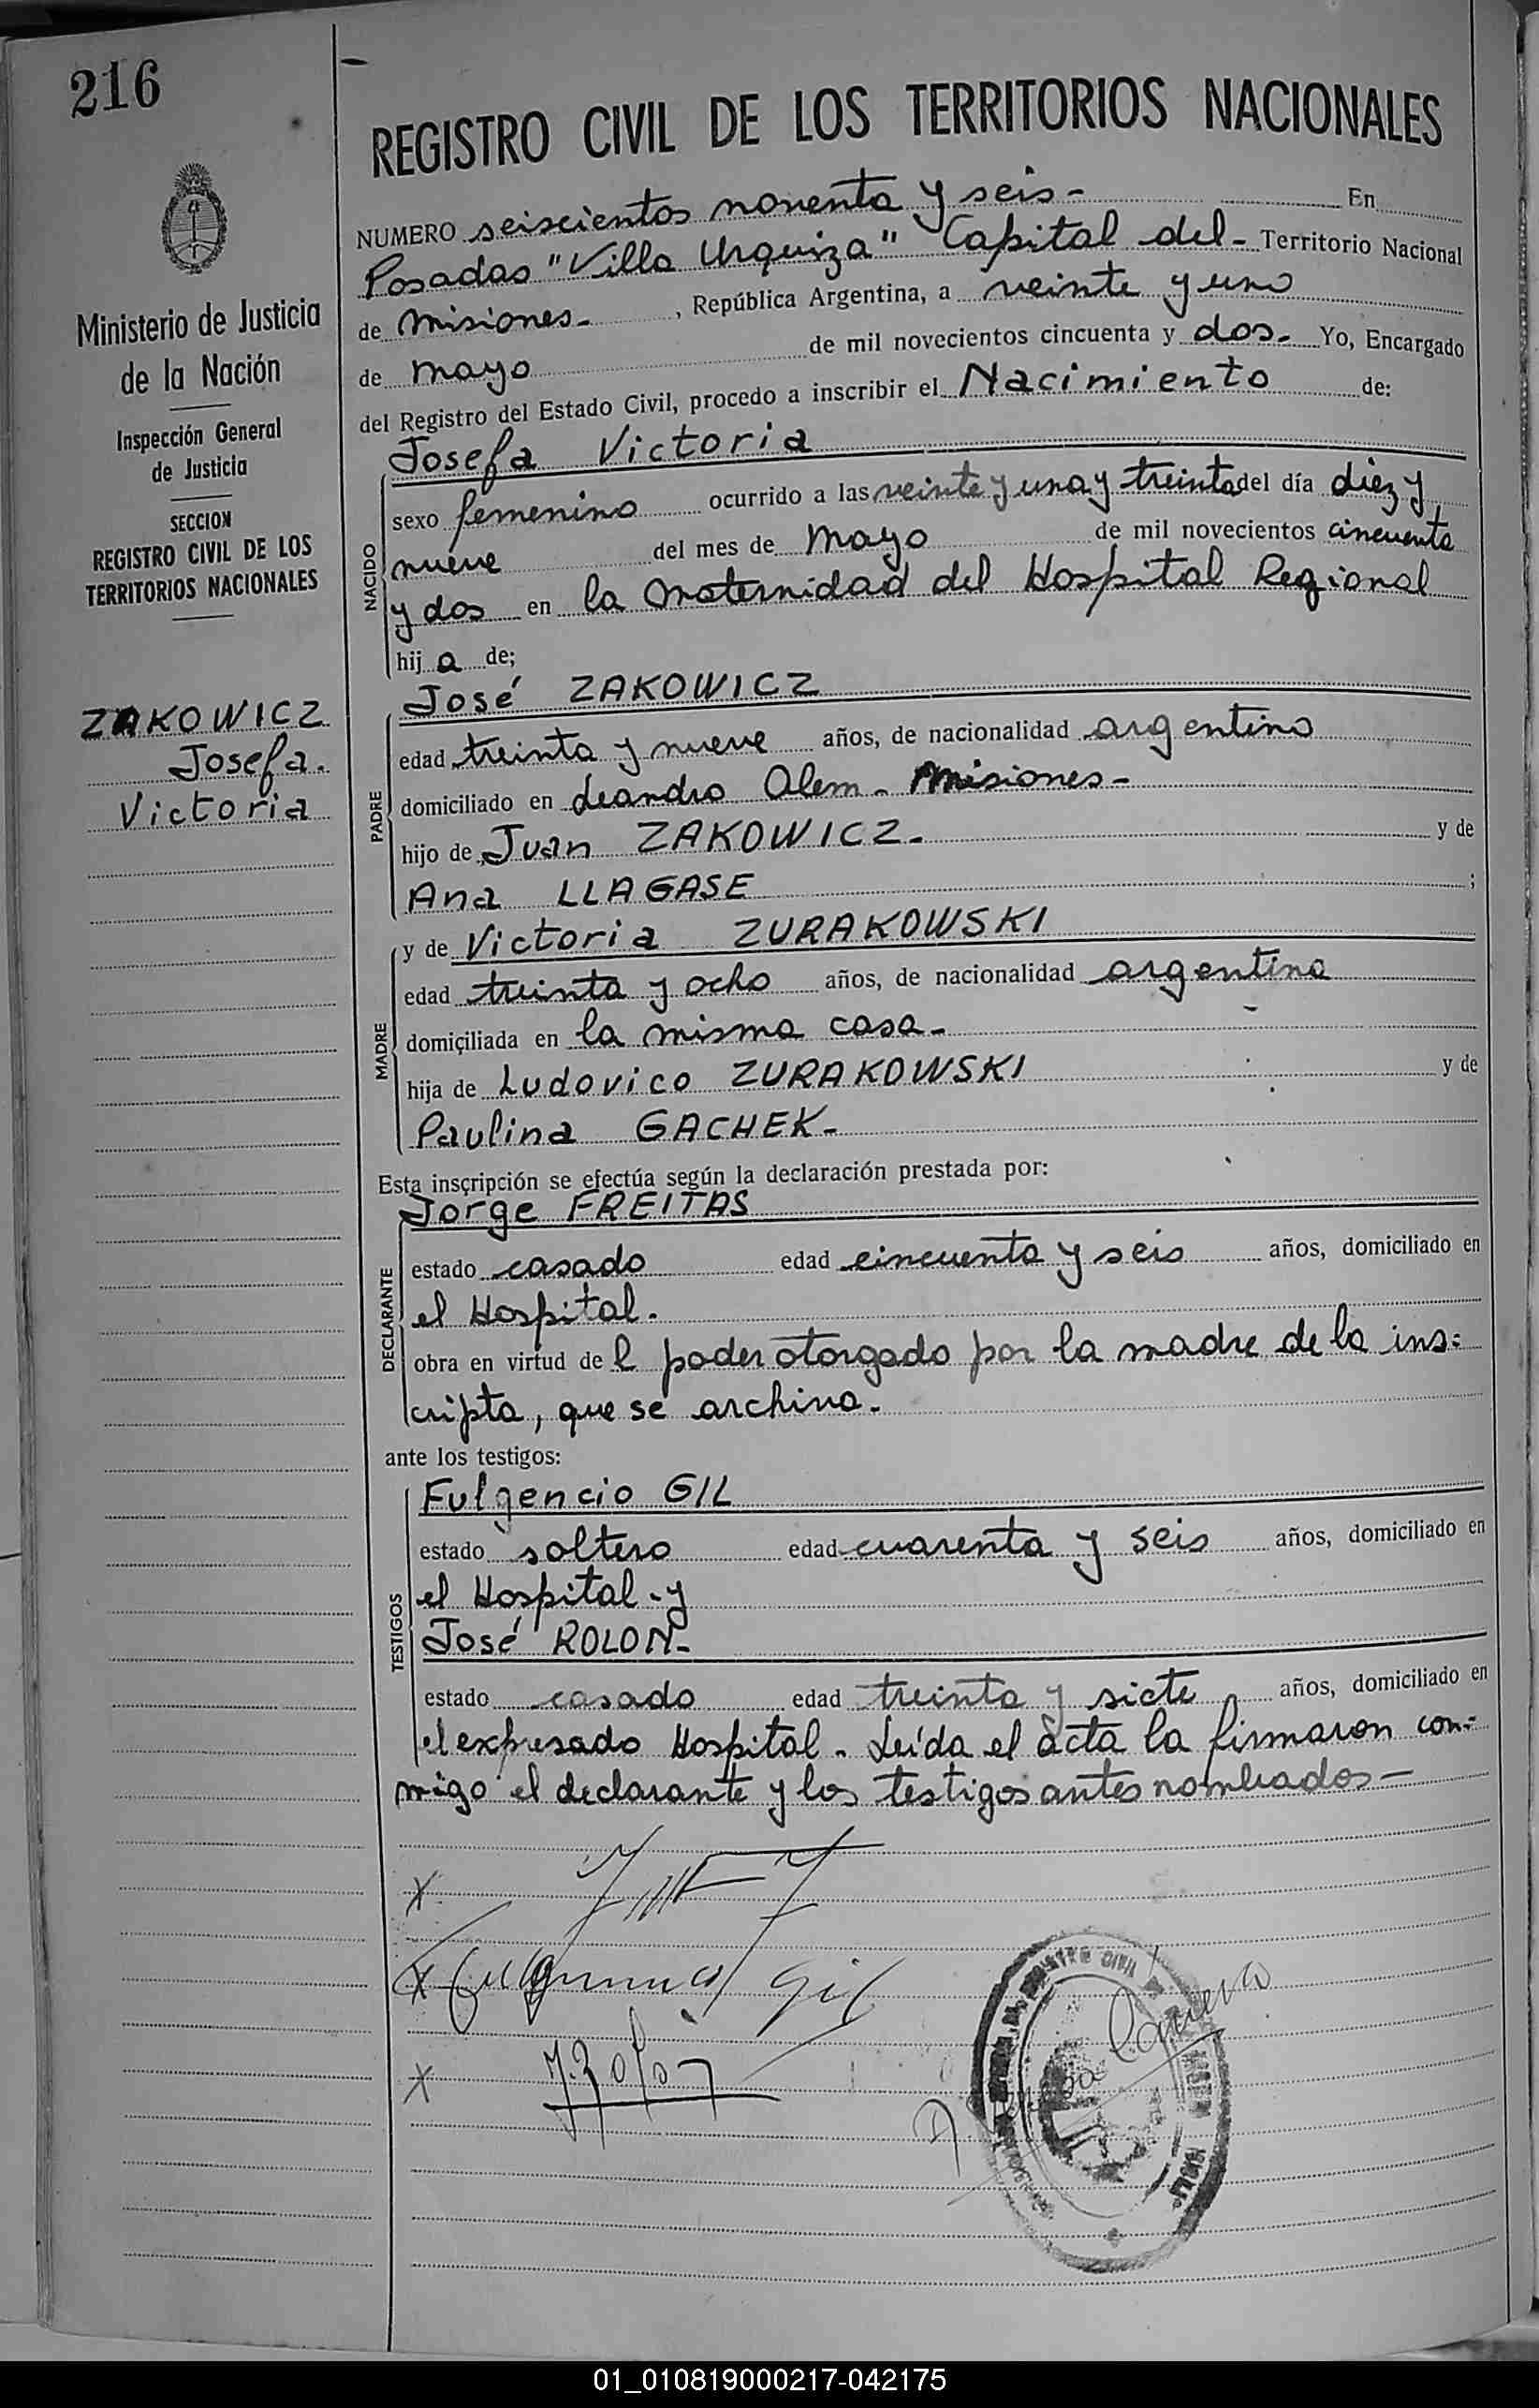 216
Ministerio de Justicia
de la Nación
Inspección General
de Justicia
SECCION
REGISTRO CIVIL DE LOS
TERRITORIOS NACIONALES
ZAKOWICZ
Josefa.
Victoria
REGISTRO CIVIL DE LOS TERRITORIOS NACIONALES
NUMERO seiscientos noventa y seis - En
Posadas "Villa Urquiza" Capital del - Territorio Nacional
de Misiones - , República Argentina, a veinte y uno
de mayo de mil novecientos cincuenta y dos - Yo, Encargado
del Registro del Estado Civil, procedo a inscribir el Nacimiento de:
Josefa Victoria
NACIDO
sexo femenino ocurrido a las veinte y una y treinta del día diez y
nueve del mes de Mayo de mil novecientos cincuenta
y dos en la Maternidad del Hospital Regional
hij a de;
José ZAKOWICZ
PADRE
edad treinta y nueve años, de nacionalidad argentino
domiciliado en Leandro Alem - Misiones -
hijo de Juan ZAKOWICZ - y de
Ana LLAGASE ;
y de Victoria ZURAKOWSKI
MADRE
edad treinta y ocho años, de nacionalidad argentina
domiciliada en la misma casa -
hija de Ludovico ZURAKOWSKI y de
Paulina GACHEK -
Esta inscripción se efectúa según la declaración prestada por:
Jorge FREITAS
DECLARANTE
estado casado edad cincuenta y seis años, domiciliado en
el Hospital.
obra en virtud de l poder otorgado por la madre de la ins:
cripta, que se archiva -
ante los testigos:
Fulgencio GIL
TESTIGOS
estado soltero edad cuarenta y seis años, domiciliado en
el Hospital - y
José ROLON -
estado casado edad treinta y siete años, domiciliado en
el expresado Hospital - Leída el acta la firmaron con-
migo el declarante y los testigos antes nombrados -
x
x Fulgencio Gil
x J. Rolon
01_010819000217-042175